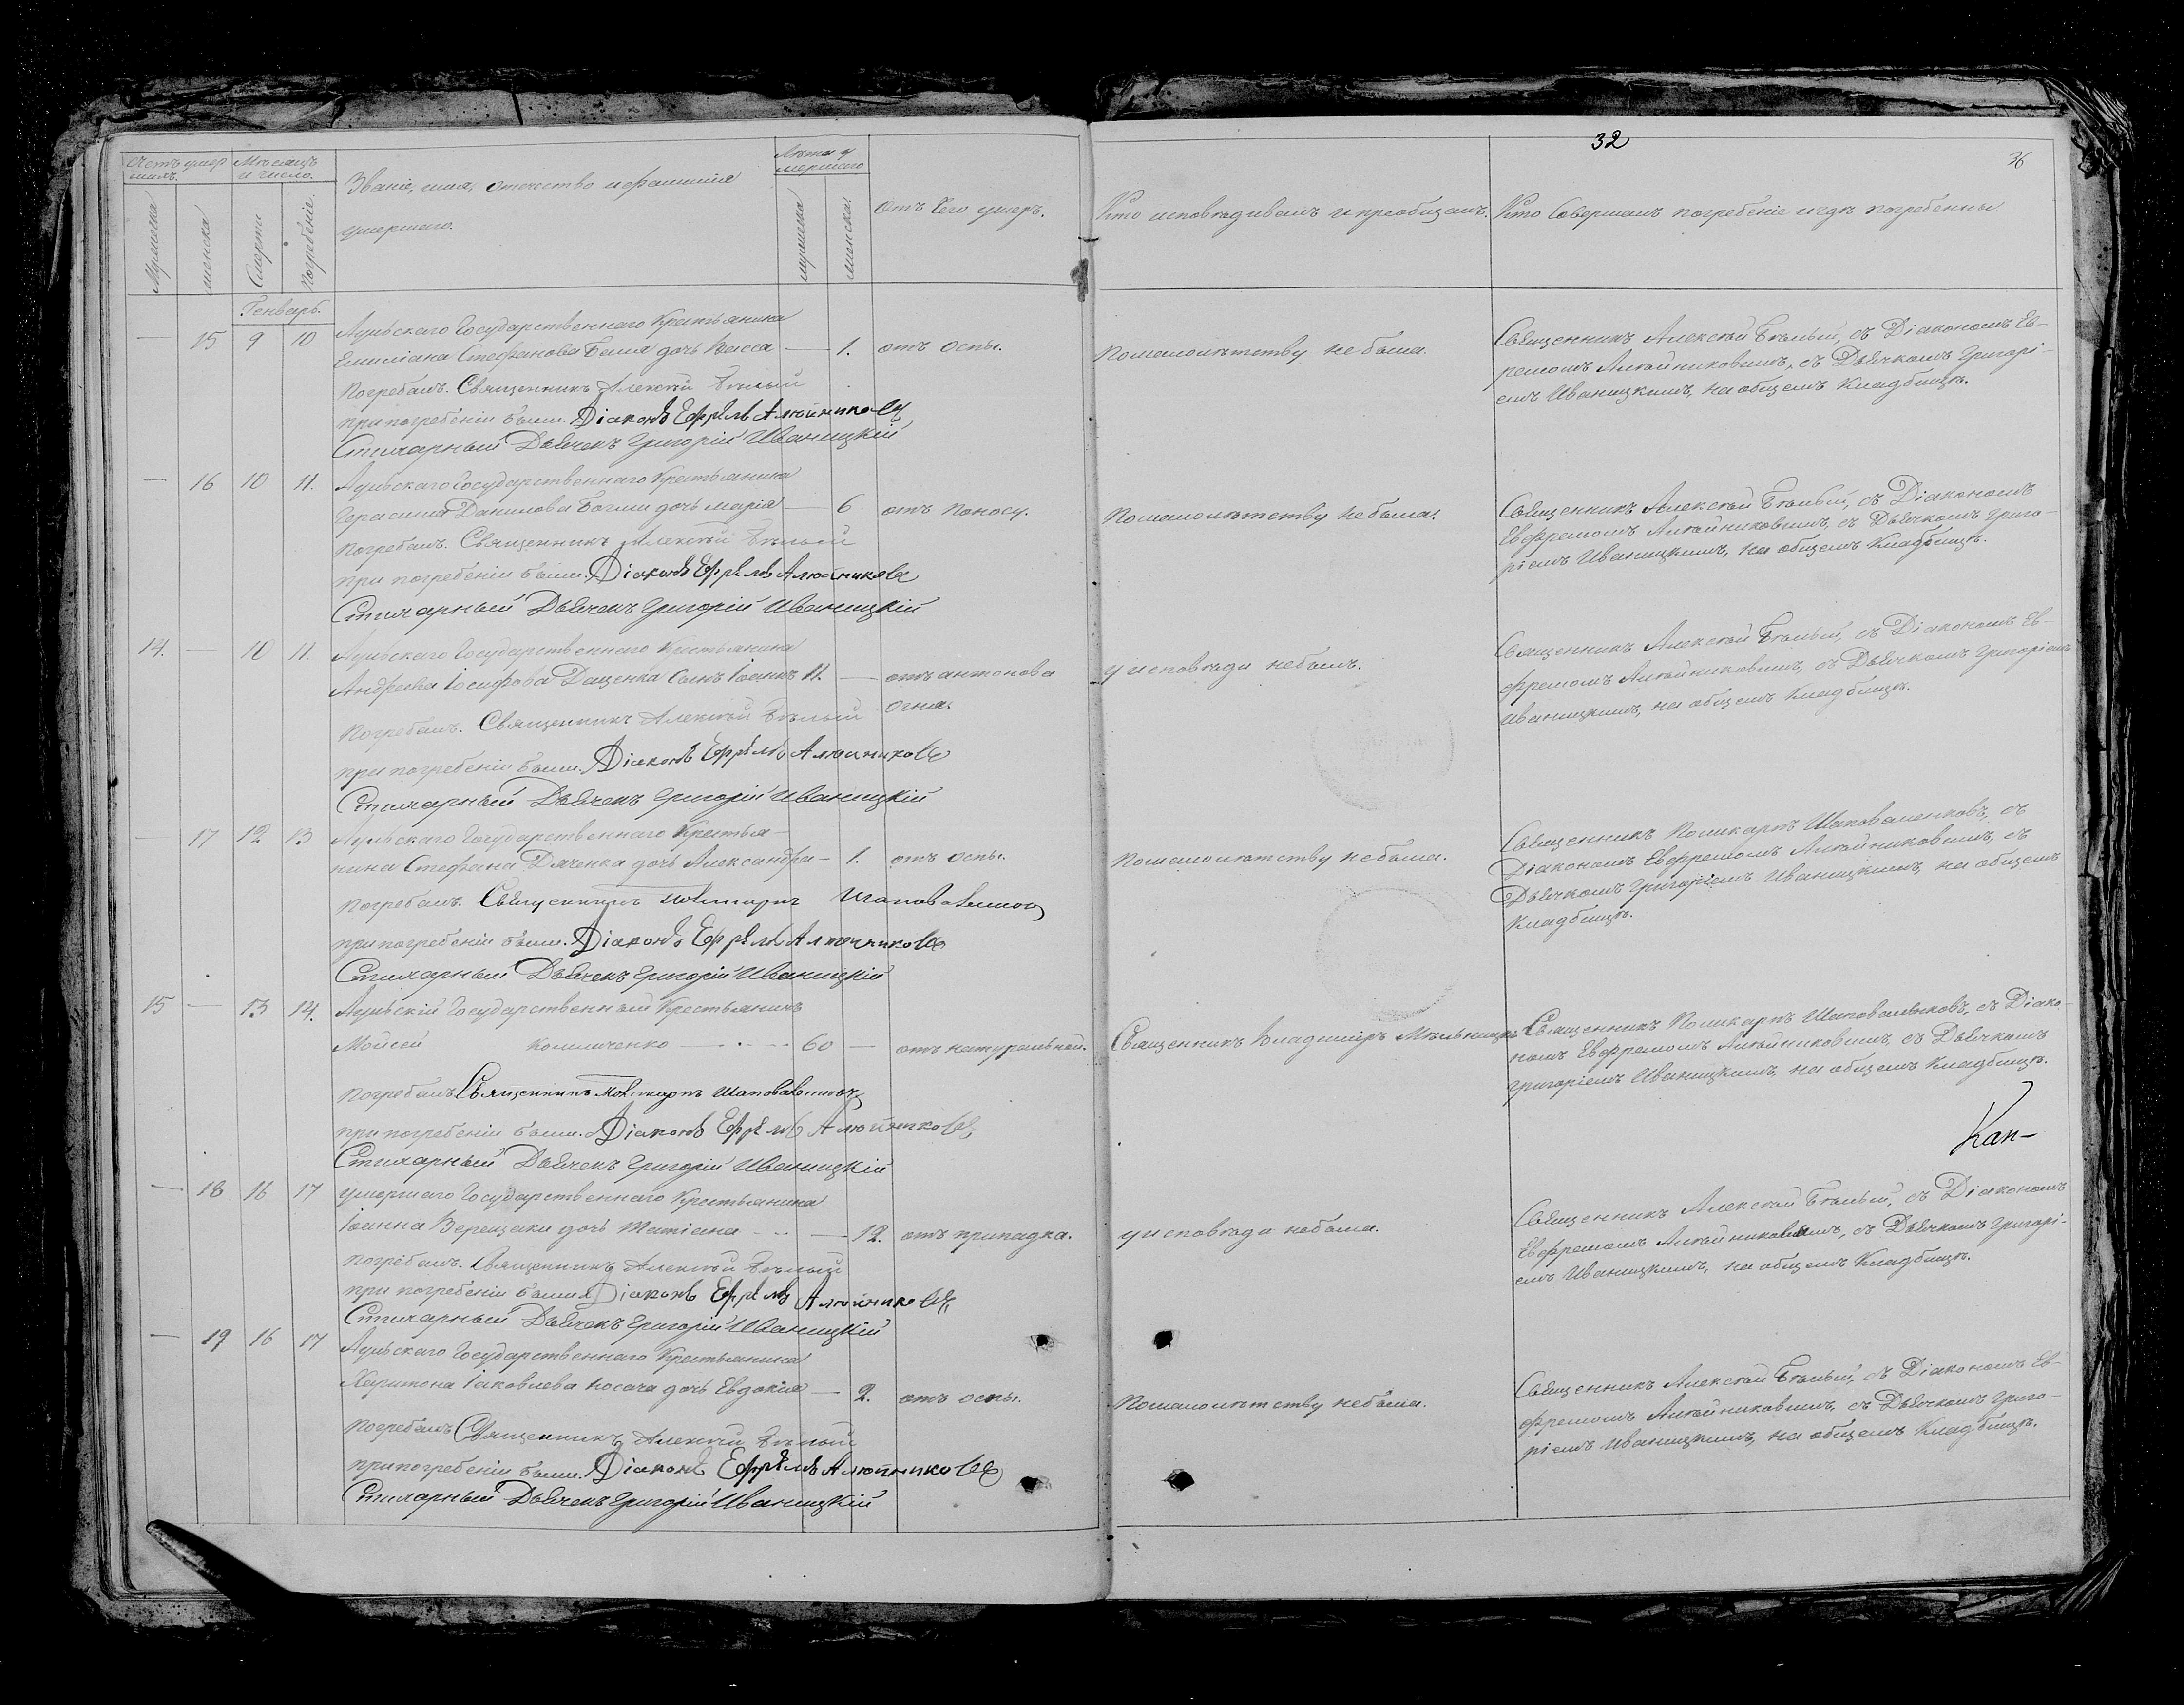 32
36
Счетъ умер
шихъ.
Мѣсяцъ
и число.
Званіе, имя, отчество и фамилія
умершаго.
Лѣта у
мершаго
Отъ чего умеръ.
Кто исповѣдивалъ и пріобщалъ.
Кто Совершалъ погребеніе и гдѣ погребенны.
Мужеска
женска
Смерти
Погребеніе.
мужеска
женска.
Генварь.
— 15 9 10 Аульскаго Государственнаго Крестьянина
Емиліана Стефанова дочь Васса — 1. отъ Оспы.
По малолѣтству не была.
Священникъ Алексѣй Бѣлый, съ Діакономъ Ев-
ремомъ Алѣйниковымъ, съ Дьячкомъ Григорі-
емъ Иваницкимъ, на общемъ Кладбищѣ.
Погребалъ. Священникъ Алексѣй Бѣлый
при погребеніи были. Діаконъ Ефремъ Алюйниковъ
Стихарный Дьячекъ Григорій Иваницкій
— 16 10 11. Аульскаго Государственнаго Крестьянина
Герасима Данилова дочь Марія — 6 отъ поносу.
По малолѣтству не была.
Священникъ Алексѣй Бѣлый, съ Діакономъ
Евфремомъ Алѣйниковымъ, съ Дьячкомъ Григо-
ріемъ Иваницкимъ, на общемъ Кладбищѣ.
Погребалъ. Священникъ Алексѣй Бѣлый
при погребеніи были. Діаконъ Ефремъ Алюйниковъ
Стихарный Дьячекъ Григорій Иваницкій
14. — 10 11. Аульскаго Государственнаго Крестьянина
Андреева Іосифова Даценка Сынъ Іоаннъ 11. — отъ антонова
огня.
у исповѣди небылъ.
Священникъ Алексѣй Бѣлый, съ Діакономъ Ев-
фремомъ Алѣйниковымъ, съ Дьячкомъ Григоріемъ
Иваницкимъ, на общемъ Кладбищѣ.
Погребалъ. Священникъ Алексѣй Бѣлый
при погребеніи были. Діаконъ Ефремъ Алюйниковъ
Стихарный Дьячекъ Григорій Иваницкій
— 17 12 13 Аульскаго Государственнаго Крестья-
нина Стефана Дяченка дочь Александра — 1. отъ оспы.
По малолѣтству не была.
Священникъ Поликарпъ Шаповаленковъ, съ
Діакономъ Евфремомъ Алѣйниковымъ, съ
Дьячкомъ Григоріемъ Иваницкимъ, на общемъ
Кладбищѣ.
Погребалъ. Священникъ Поликарпъ Шаповаленков
при погребеніи были. Діаконъ Ефремъ Алюйниковъ
Стихарный Дьячекъ Григорій Иваницкій
15 — 13 14. Аульскій Государственный Крестьянинъ
Мойсей Колиниченко — 60 — отъ натуральной.
Священникъ Владимиръ Мѣльницкій
Священникъ Поликарпъ Шаповаленковъ, съ Діако-
номъ Евфремомъ Алѣйниковымъ, съ Дьячкомъ
Григоріемъ Иваницкимъ, на общемъ Кладбищѣ.
Погребалъ Священникъ Поликарпъ Шаповаленковъ
при погребеніи были. Діаконъ Ефремъ Алюйниковъ
Стихарный Дьячекъ Григорій Иваницкій
Кап-
— 18 16 17 умершаго Государственнаго Крестьянина
Іоанна Верещаки дочь Татіана — 12. отъ припадка.
у исповѣди небыла.
Священникъ Алексѣй Бѣлый, съ Діакономъ
Евфремомъ Алѣйниковымъ, съ Дьячкомъ Григорі-
емъ Иваницкимъ, на общемъ Кладбищѣ.
Погребалъ. Священникъ Алексѣй Бѣлый
при погребеніи были Діаконъ Ефремъ Алюйниковъ
Стихарный Дьячекъ Григорій Иваницкій
— 19 16 17 Аульскаго Государственнаго Крестьянина
Харитона Іаковлева Носача дочь Евдокія — 2. отъ оспы.
По малолѣтству небыла.
Священникъ Алексѣй Бѣлый, съ Діакономъ Ев-
фремомъ Алѣйниковымъ, съ Дьячкомъ Григо-
ріемъ Иваницкимъ, на общемъ Кладбищѣ.
Погребалъ Священникъ Алексѣй Бѣлый
при погребеніи были. Діаконъ Ефремъ Алюйниковъ
Стихарный Дьячекъ Григорій Иваницкій